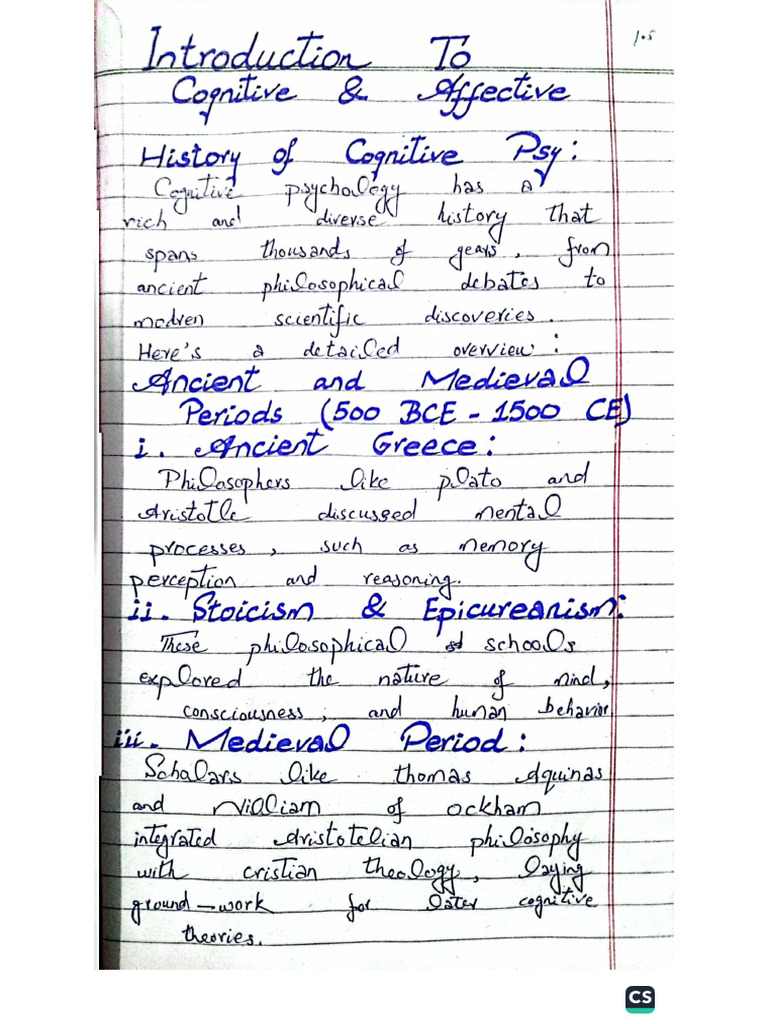 1.5
Introduction To
Cognitive & Affective
History of Cognitive Psy:
Cognitive psychology has a
rich and diverse history that
spans thousands of years, from
ancient philosophical debates to
modren scientific discoveries.
Here's a detailed overview:
Ancient and Medieval
Periods (500 BCE - 1500 CE)
i. Ancient Greece:
Philosophers like plato and
Aristotle discussed mental
processes, such as memory
perception and reasoning.
ii. Stoicism & Epicureanism:
These philosophical schools
explored the nature of mind,
consciousness, and human behavior
iii. Medieval Period:
Scholars like thomas Aquinas
and William of ockham
integrated Aristotelian philosophy
with cristian theology, laying
ground-work for later cognitive
theories.
CS